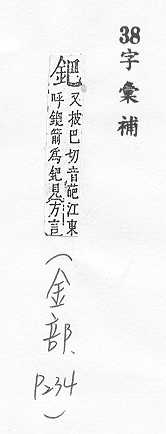 38字彙補
鈀
又披巴切音葩江東
呼鎞箭為鈀見方言
(金部、P234)